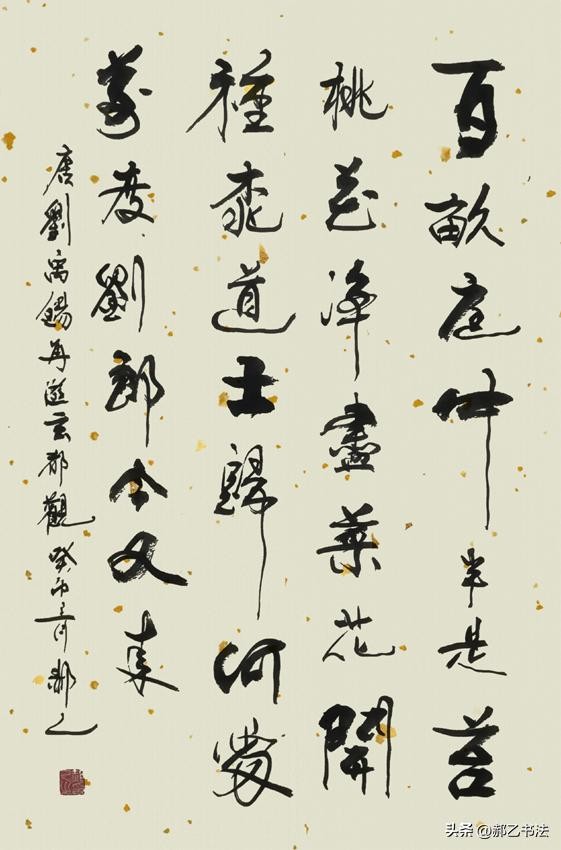 百畝庭中半是苔
桃花淨盡菜花開
種桃道士歸何處
前度劉郎今又來
唐劉禹錫再遊玄都觀癸卯郝乙
头条 @郝乙书法